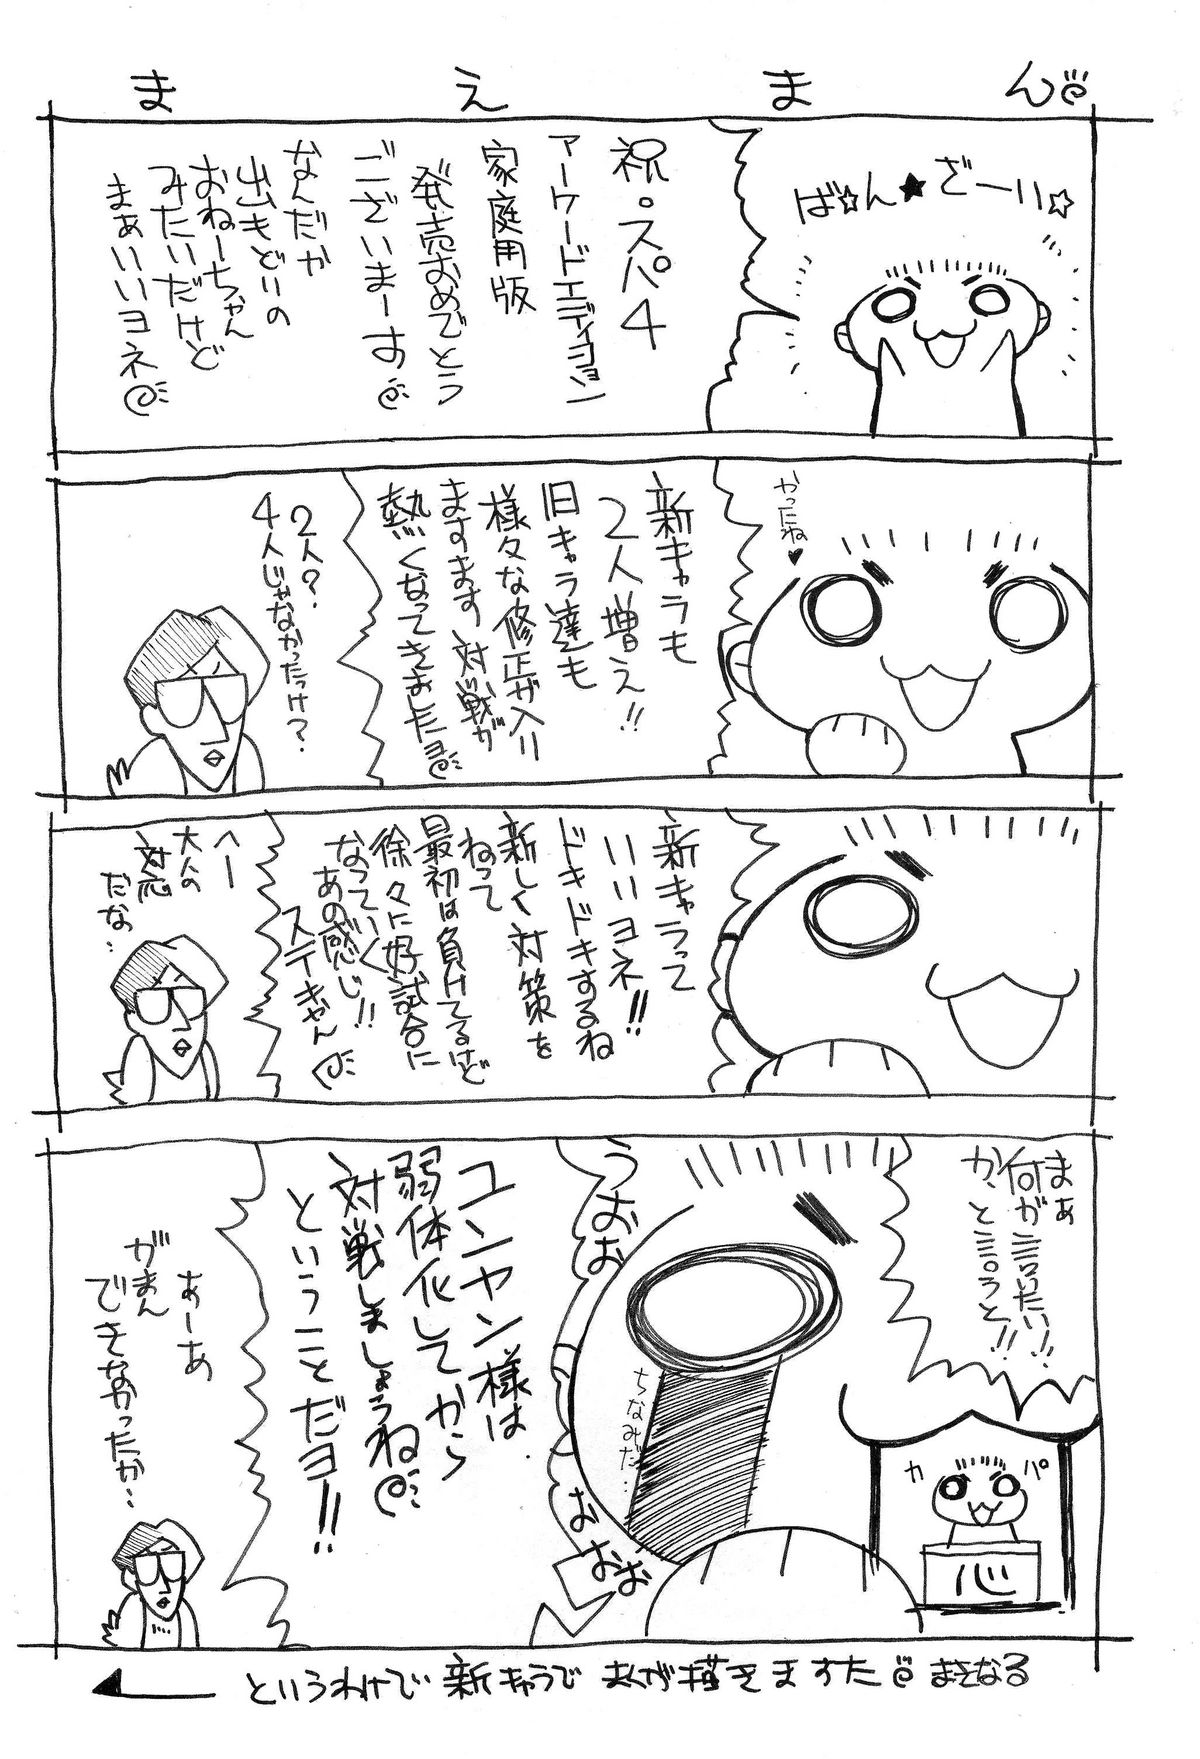 まえまん
ば☆ん★ざーい☆
祝・スパ4
アーケードエディション
家庭用版
発売おめでとう
ございまーす
なんだか
出もどりの
おねーちゃん
みたいだけど
まぁいいヨネ
かったね♥
新キャラも
2人増え!!
旧キャラ達も
様々な修正が入り
ますます対戦が
熱くなってきましたヨ
2人?
4人じゃなかったっけ?
新キャラって
いいヨネ!!
ドキドキするね
新しく対策を
ねって
最初は負けてるけど
徐々に好試合に
なっていく
あの感じ!!
ステキやん
へー
大人の
対応
だな…
まぁ
何が言いたい!!
か、と言うと!!
カパ
心
うおお
おおお
ちなみだ…
ユンヤン様は
弱体化してから
対戦しましょうね
ということだヨ!!
あーあ
がまん
できなかったか…
というわけで新キャラでまんが描きますた まさなる